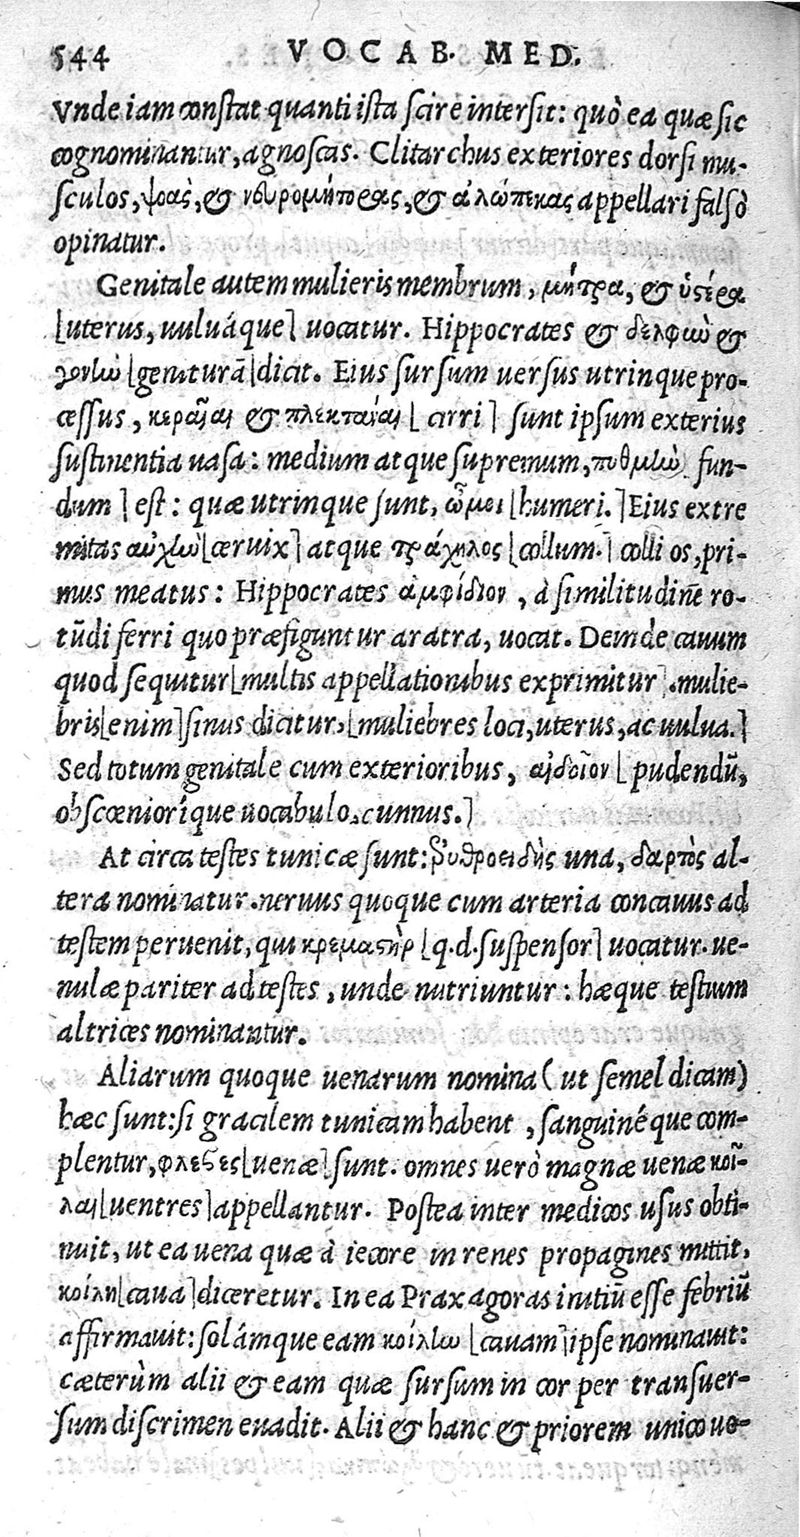 544 VOCAB. MED.
Vnde iam constat quanti ista scire intersit: quò ea quæ sic
cognominantur, agnoscas. Clitarchus exteriores dorsi mu-
sculos, ψοας, & νευρομήτορας, & ἀλώπεκας appellari falsò
opinatur.
Genitale autem mulieris membrum, μήτρα, & ὑστέρα
[uterus, uuluáque] uocatur. Hippocrates & δελφιὼ &
γονιὼ [geniturā] dicit. Eius sursum uersus utrinque pro-
cessus, κεραῖαι & πλεκτάναι [cirri] sunt ipsum exterius
sustinentia uasa: medium atque supremum, πυθμιὼ fun-
dum] est: quæ utrinque sunt, ὦμοι [humeri.] Eius extre
mitas αὐχιὼ [ceruix] atque τράχηλος [collum.] colli os, pri-
mus meatus: Hippocrates ἀμφίδιον, à similitudinē ro-
tūdi ferri quo præfiguntur aratra, uocat. Deinde cauum
quod sequitur [multis appellationibus exprimitur] .mulie-
bris [enim] sinus dicitur, [muliebres loci, uterus, ac uulua.]
Sed totum genitale cum exterioribus, αἰδοῖον [pudendū,
obscœnioríque uocabulo, cunnus.]
At circa testes tunicæ sunt: ἐρυθροειδὴς una, δαρτὸς al-
tera nominatur. neruus quoque cum arteria concauus ad
testem peruenit, qui κρεμαστὴρ [q.d. suspensor] uocatur. ue-
nulæ pariter ad testes, unde nutriuntur: hæque testium
altrices nominantur.
Aliarum quoque uenarum nomina (ut semel dicam)
hæc sunt: si gracilem tunicam habent, sanguinéque com-
plentur, φλέβες [uenæ] sunt. omnes uerò magnæ uenæ κοῖ-
λαι [uentres] appellantur. Postea inter medicos usus obti-
nuit, ut ea uena quæ à iecore in renes propagines mittit,
κοίλη [caua] diceretur. In ea Praxagoras initiū esse febriū
affirmauit: solámque eam κοίλιω [cauam] ipse nominauit:
cæterùm alii & eam quæ sursum in cor per transuer-
sum discrimen euadit. Alii & hanc & priorem unico uo-